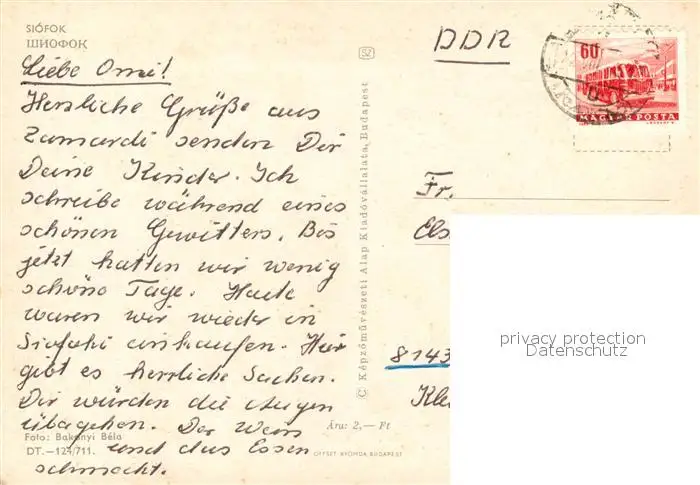 SIÓFOK
ШИОФОК
Liebe Omi!
Herzliche Grüße aus
Zamardi senden Dir
Deine Kinder. Ich
schreibe während eines
schönen Gewitters. Bis
jetzt hatten wir wenig
schöne Tage. Heute
waren wir wieder in
Siofoki einkaufen. Hier
gibt es herrliche Sachen.
Dir würden die Augen
übagehen. Der Wein
und das Essen
schmeckt.
Foto: Bakonyi Béla
DT.—124/711.
SZ
© Képzőművészeti Alap Kiadóvállalata, Budapest
Ára: 2,— Ft
OFFSET NYOMDA BUDAPEST
DDR
60
MAGYAR POSTA
Fr.
Els
8143
Kle
privacy protection
Datenschutz